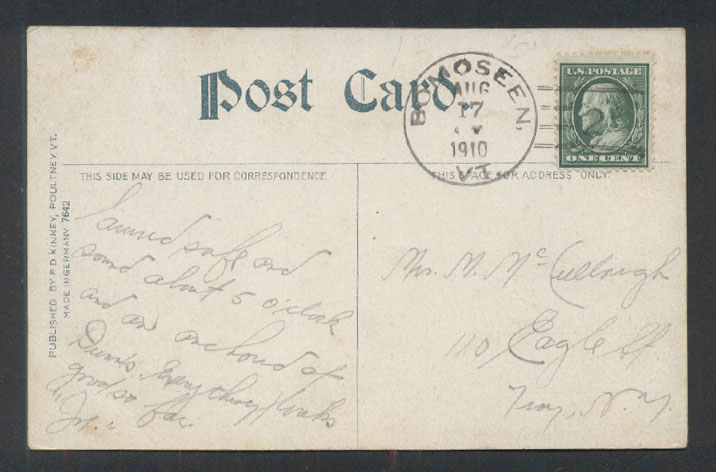 Post Card.
BOMOSEEN,
AUG
17
1910
VT.
U.S. POSTAGE
2
ONE CENT
PUBLISHED BY P.D. KINNEY, POULTNEY, VT.
MADE IN GERMANY 7642
THIS SIDE MAY BE USED FOR CORRESPONDENCE
THIS SPACE FOR ADDRESS ONLY.
safe and
sound about 5 o'clock
and am anchored at
Everything looks
good so far.
"Jr."
Mrs. M. McCullough
110 Eagle St
Troy, N.Y.